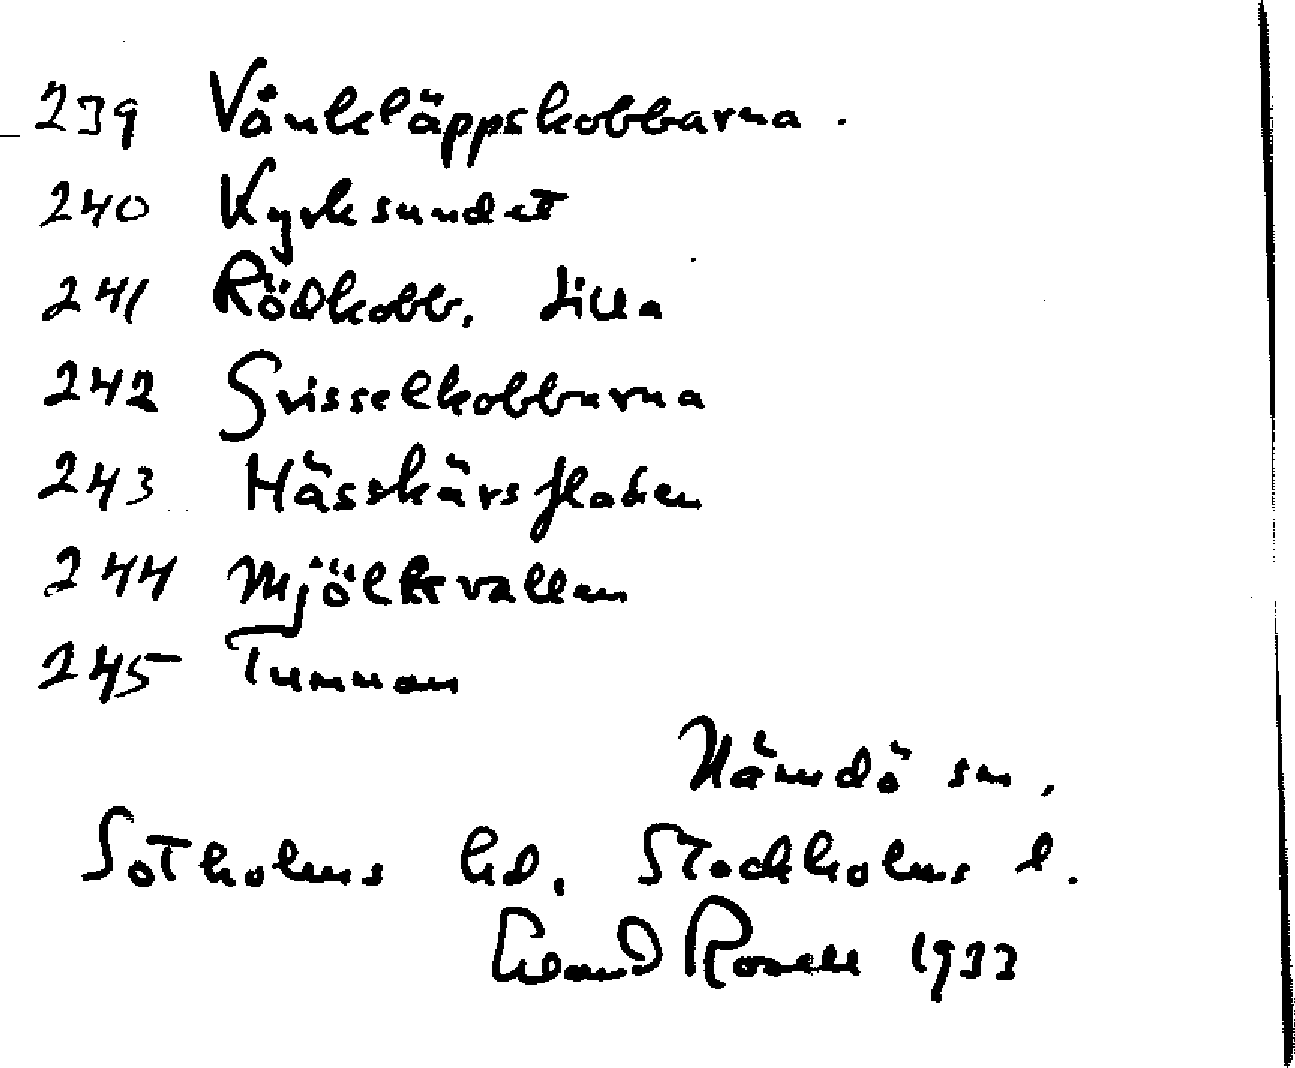 239 Vånkläppskobbarna.
240 Kyrksundet
241 Rödkobb, Lilla
242 Grisselkobbarna
243 Hässkärsfladen
244 Mjölkvallen
245 Tumman
Nämdö sn,
Sotholms hd, Stockholms l.
Rosell 1933